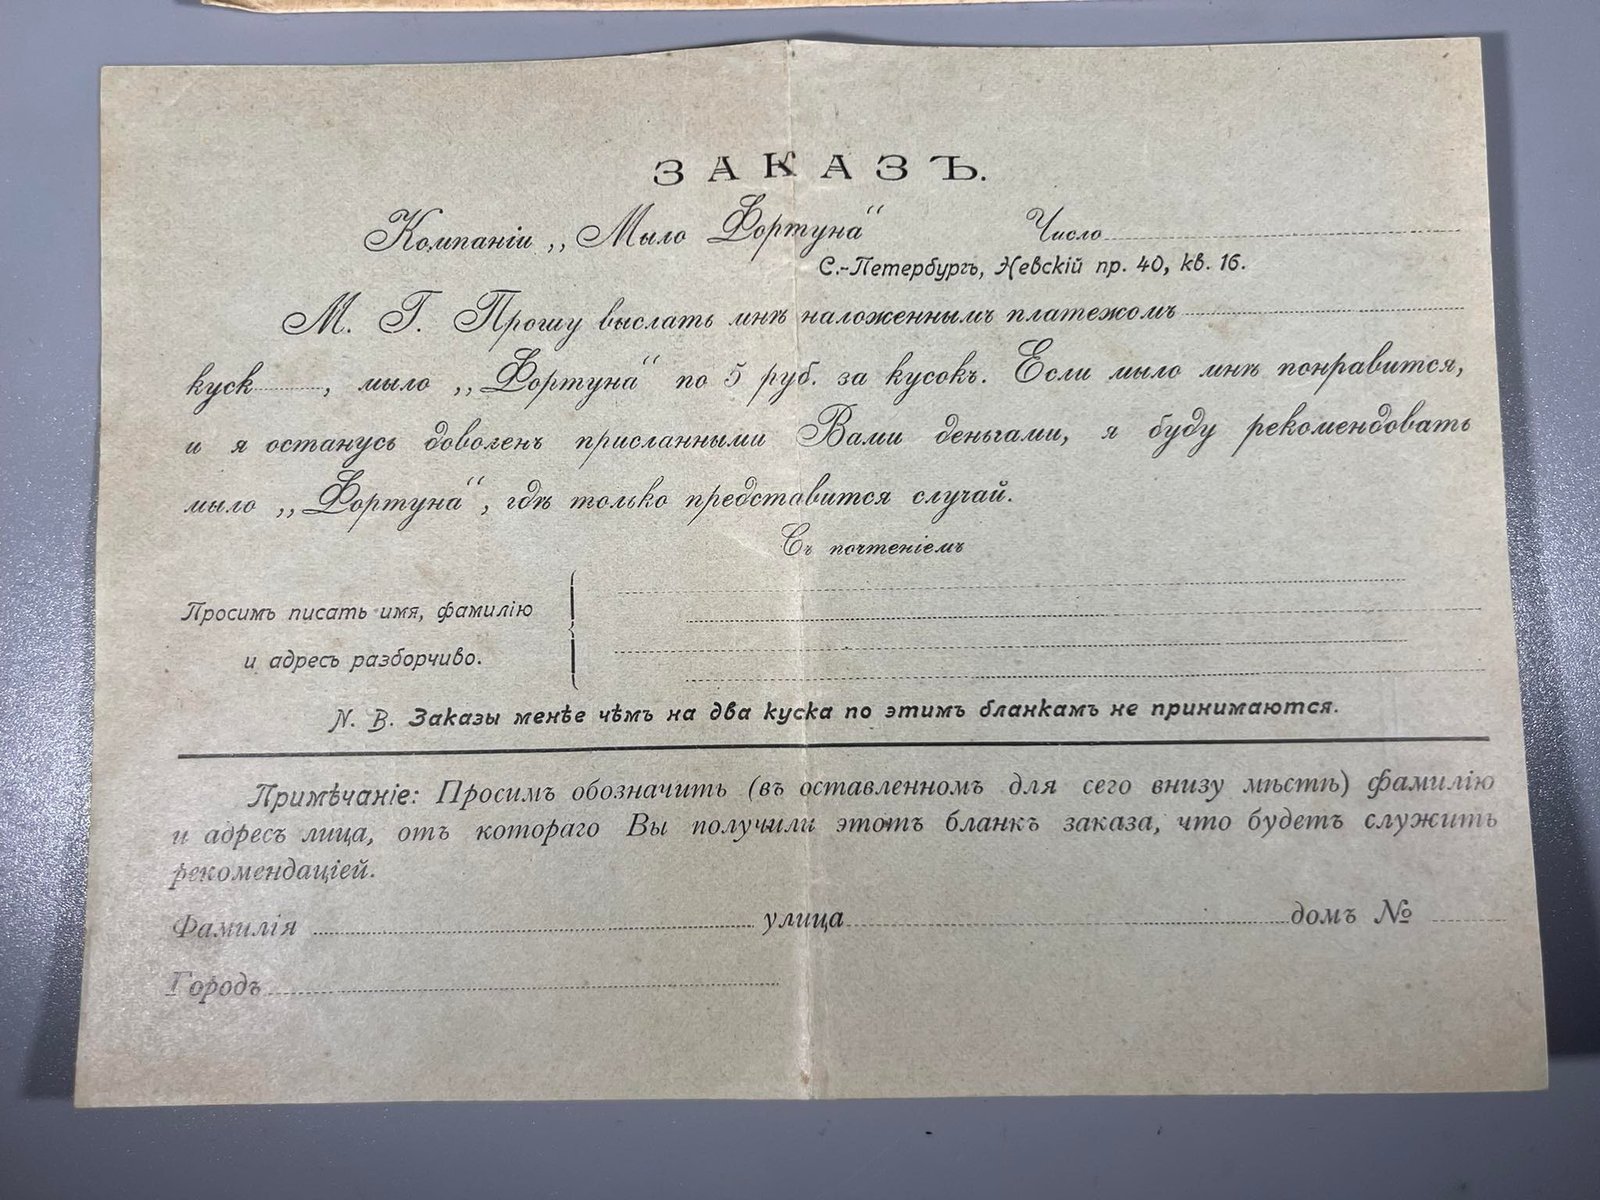 ЗАКАЗЪ.
Компаніи „Мыло Фортуна“ Число
С.-Петербургъ, Невскій пр. 40, кв. 16.
М. Г. Прошу выслать мнѣ наложеннымъ платежомъ
куск , мыло „Фортуна“ по 5 руб. за кусокъ. Если мыло мнѣ понравится,
и я останусь доволенъ присланными Вами деньгами, я буду рекомендовать
мыло „Фортуна“, гдѣ только представится случай.
Съ почтеніемъ
Просимъ писать имя, фамилію
и адресъ разборчиво.
N. B. Заказы менѣе чѣмъ на два куска по этимъ бланкамъ не принимаются.
Примѣчаніе: Просимъ обозначить (въ оставленномъ для сего внизу мѣстѣ) фамилію
и адресъ лица, отъ котораго Вы получили этотъ бланкъ заказа, что будетъ служить
рекомендаціей.
Фамилія улица домъ №
Городъ